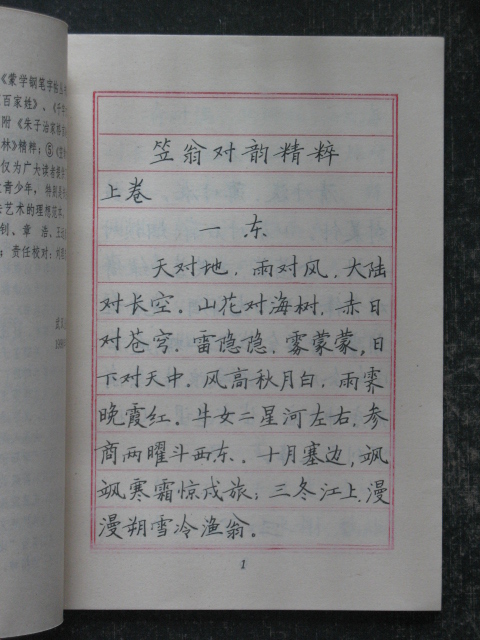 《蒙学钢笔字帖
百家姓》、《千字
附《朱子治家格言
林》精粹；⑤《
仅为广大读者
青少年，特别是
艺术的理想范本
钊、章浩、王
责任校对：刘
笠翁对韵精粹
上卷
一 东
天对地，雨对风，大陆
对长空。山花对海树，赤日
对苍穹。雷隐隐，雾蒙蒙，日
下对天中。风高秋月白，雨霁
晚霞红。牛女二星河左右，参
商两曜斗西东。十月塞边，飒
飒寒霜惊戍旅；三冬江上，漫
漫朔雪冷渔翁。
1